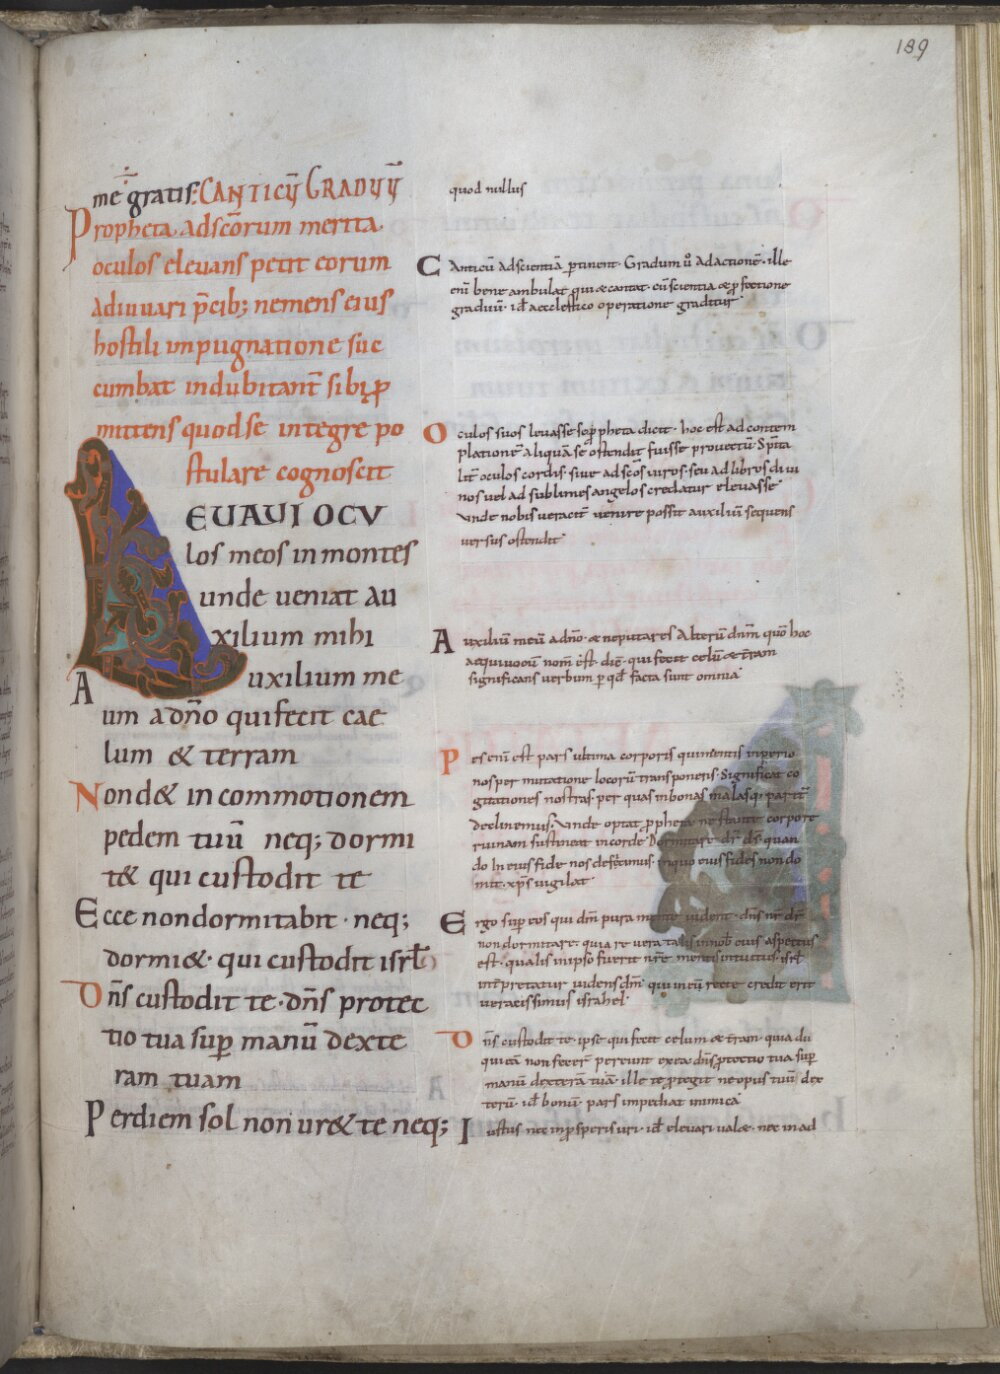 189
me gratis: CANTICŪ GRADUŪ
Propheta adsc̄orum merita
oculos elevans petit eorum
adiuvari p̄cib; ne mens eius
hostili inpugnatione suc
cumbat indubitant̄ sibi ꝓ
mittens quod se integre po
stulare cognoscit
LEVAVI OCV
los meos in montes
unde veniat au
xilium mihi
Auxilium me
um a dn̄o qui fecit cae
lum & terram
Non d& in commotionem
pedem tuū neq; dormi
t& qui custodit te
Ecce non dormitabit · neq;
dormi&· qui custodit isrl̄
Dn̄s custodit te · dn̄s protec
tio tua sup̱ manū dexte
ram tuam
Per diem sol non ur& te neq;
quod nullus
Canticū ad scientiā ꝑtinent · Gradum ū ad actionē · ille
enī bene ambulat qui & cantat · cū scientia & ꝑfectione
graduū · id ÷ aecclesiastico operatione graditur
Oculos suos levasse se ꝓpheta dicit · hoc est ad contem
platione aliquā se ostendit fuisse provectū · Sp̄ita
lit̄ oculos cordis · sive ad sc̄os viros · seu ad libros divi
nos vel ad sublimes angelos credatur elevasse
Unde nobis veracit̄ venire possit auxiliū sequens
versus ostendit
Auxiliū meū a dn̄o · & ne putares alterū dn̄m quō hoc
aequivocū nom̄ est · dic̄ · qui fecit celū & t̄ram
significans verbum ꝑ qd̄ facta sunt omnia
Pes enī est pars ultima corporis quinentis in ꝓprio
nos per mutatione locorū transponens · Significat co
gitationes nostras · per quas in bonas malasq; partē
declinemus · Unde optat ꝓpheta ne stante corpore
ruinam sustineat in corde · Dormitare dr̄ ds̄ · quan
do in eius fide nos defecimus · in quo eius fides non do
mit · xp̄s vigilat
Ergo sup̱ eos qui dm̄ pura mente vident · dn̄s nr̄ dr̄
non dormitare · quia re vera talis in nob̄ eius aspectus
est · qualis in ipso fuerit nr̄e mentis intuitus · isrl̄
interpretatur videns dm̄ · qui meū recte credit erit
veracissimus israhel
Dn̄s custodit te · ipse qui fecit celum & t̄ram · quia dii
qui eā non fecer̄ pereunt ex ea · dn̄s ꝓtectio tua sup̱
manū dexterā tuā · ille te ꝓtegit ne opus tuū dex
terū · id ÷ bonū · pars impediat inimica
Iustus nec in ꝓsperis uri · id ÷ elevari val& · nec in ad